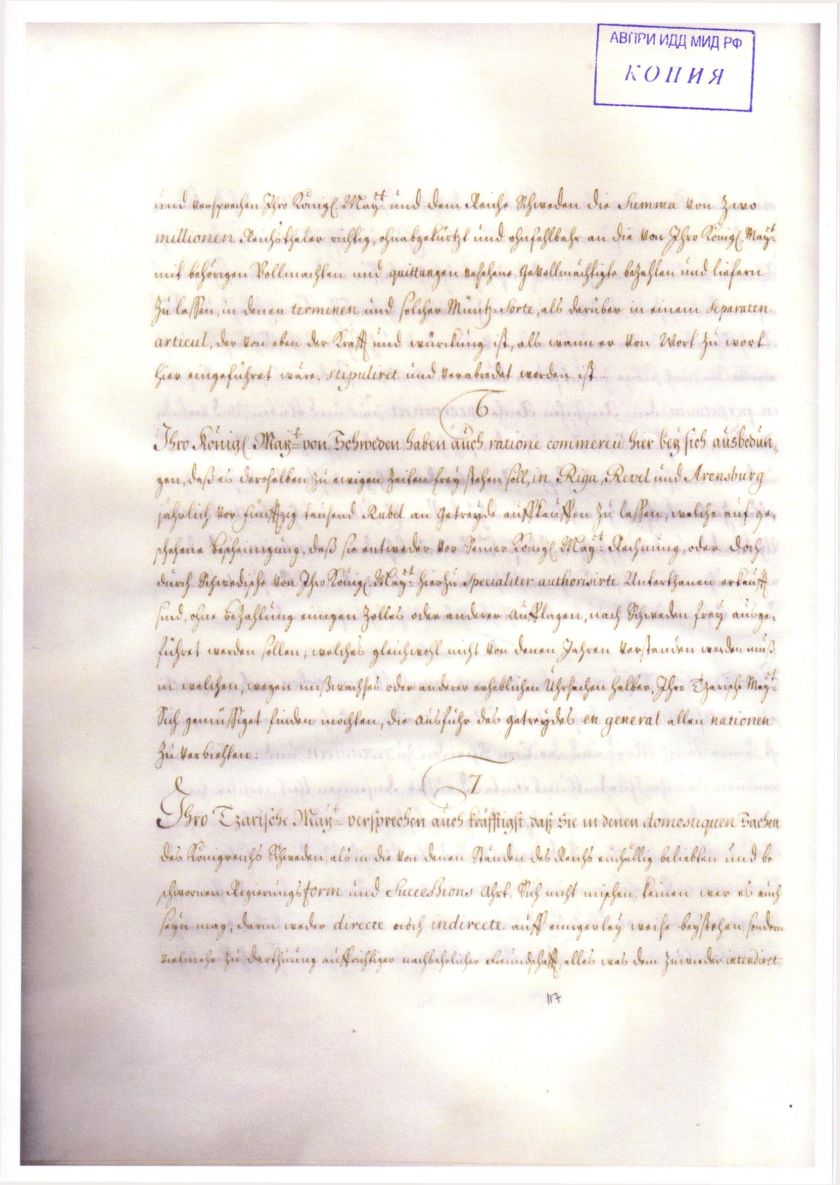 АВПРИ ИДД МИД РФ
КОПИЯ
und versprechen Ihro Königl. Mayt. und dem Reiche Schweden die Summa von Zwo
millionen Reichsthaler richtig, ohnabgekürtzt und ohnfehlbahr an die von Ihro Königl. Mayt.
mit behörigen Vollmachten und quittungen versehene Gevollmächtigte bezahlen und liefern
zu lassen, in denen terminen und solcher Müntz-Sorte, als darüber in einem Separaten
articul, der von eben der Krafft und würckung ist, als wann er von Wort zu wort
hier eingeführet wäre, stipuliret und verabredet worden ist.
6
Ihro Königl. Mayt. von Schweden haben auch ratione commercii hier bey sich ausbedun-
gen, daß es deroselben zu ewigen Zeiten frey stehen soll, in Riga, Revel und Arensburg
jährlich vor fünfftzig tausend Rubel an Getreyde auffkauffen zu lassen, welche auf ge-
schehene bescheinigung, daß sie entweder vor Seiner Königl. Mayt. Rechnung, oder doch
durch Schwedische von Ihro Königl. Mayt. hierzu specialiter authorisirte Unterthanen erkaufft
sind, ohne bezahlung einigen Zolles oder anderer Aufflagen, nach Schweden frey ausge-
führet werden sollen; welches gleichwohl nicht von denen Jahren verstanden werden muß
in welchen, wegen mißwachses oder anderer erheblichen Uhrsachen halber, Ihro Tzarische Mayt.
Sich gemüssiget finden mochten, die Ausfuhr des getreydes en general allen nationen
zu verbiehten.
7
Ihro Tzarische Mayt. versprechen auch kräfftigst daß Sie in denen domestiquen Sachen
des Königreichs Schweden, als in die von denen Ständen des Reichs einhällig beliebten und be
schwornen Regierungsform und Successions Ahrt, Sich nicht mischen, keinen wer es auch
seyn mag, darin weder directe noch indirecte auff einigerley weise beystehen sondern
vielmehr zu darthuung auffrichtiger nachbahrlicher Freundschafft, alles was dem zuwieder intendiret,
117